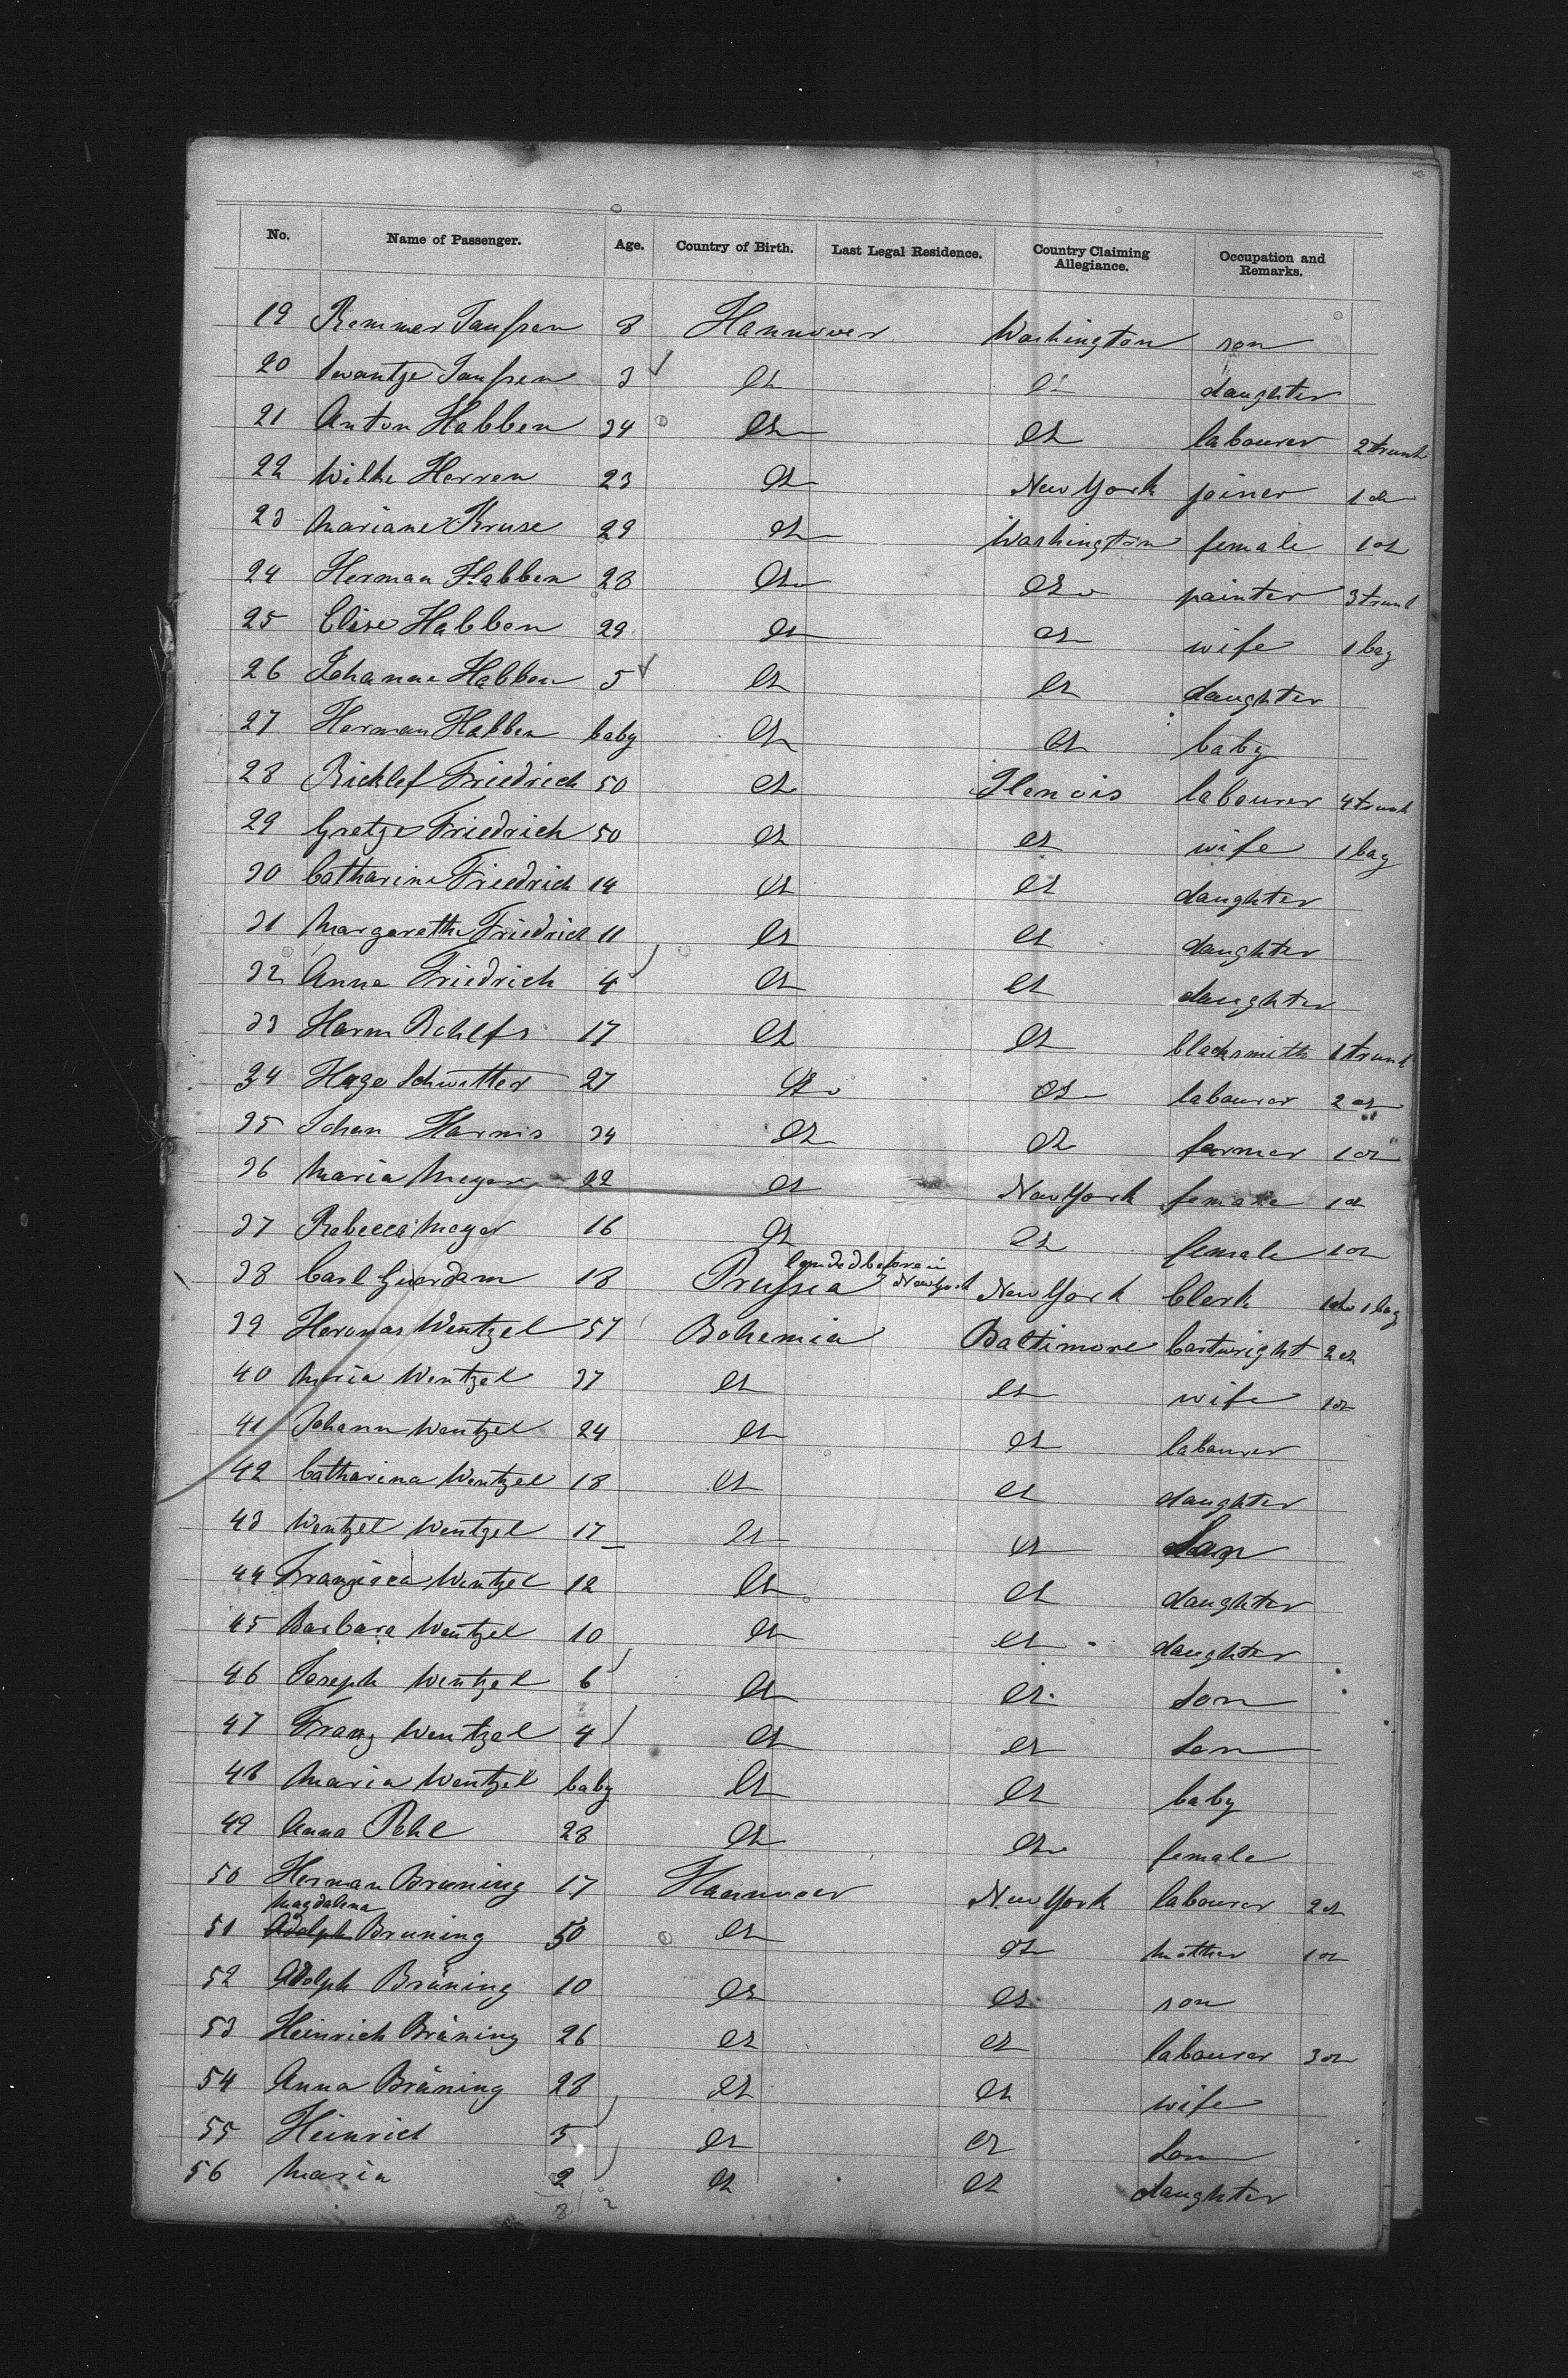 No. Name of Passenger. Age. Country of Birth. Last Legal Residence. Country Claiming Allegiance. Occupation and Remarks.
19 Remmer Janssen 8 Hannover Washington son
20 Swantze Janssen 3 do do daughter
21 Anton Habben 34 do do labourer 2 trunk
22 Wilke Herren 23 do New York joiner 1 do
23 Mariane Kruse 29 do Washington female 1 do
24 Herman Habben 28 do do painter 3 trunk
25 Elise Habben 29 do do wife 1 bag
26 Johanne Habben 5 do do daughter
27 Herman Habben baby do do baby
28 Ricklef Friedrich 50 do Ilenois labourer 4 trunk
29 Gretze Friedrich 50 do do wife 1 bag
30 Catharine Friedrich 14 do do daughter
31 Margarethe Friedrich 11 do do daughter
32 Anna Friedrich 4 do do daughter
33 Harm Rohlfs 17 do do blacksmith 1 trunk
34 Hage Schwitter 27 do do labourer 2 do
35 Johan Harms 34 do do farmer 1 do
36 Maria Meyer 22 do New York female 1 do
37 Rebecca Meyer 16 do do female 1 do
38 Carl Guerdam 18 Prussia landed before in New York New York Clerk 1 do 1 bag
39 Heronas Wentzel 57 Bohemia Baltimore Cartwright 2 do
40 Maria Wentzel 37 do do wife 1 do
41 Johann Wentzel 24 do do labourer
42 Catharina Wentzel 18 do do daughter
43 Wentzel Wentzel 17 do do Son
44 Franzisca Wentzel 12 do do daughter
45 Barbara Wentzel 10 do do daughter
46 Joseph Wentzel 6 do do Son
47 Franz Wentzel 4 do do Son
48 Maria Wentzel baby do do baby
49 Anna Pohl 28 do do female
50 Herman Bruning 17 Hannover New York labourer 2 do
Magdalena
51 Adolph Bruning 50 do do mother 1 do
52 Adolph Brüning 10 do do son
53 Heinrich Brüning 26 do do labourer 3 do
54 Anna Brüning 28 do do wife
55 Heinrich 5 do do Son
56 Maria 2 do do daughter